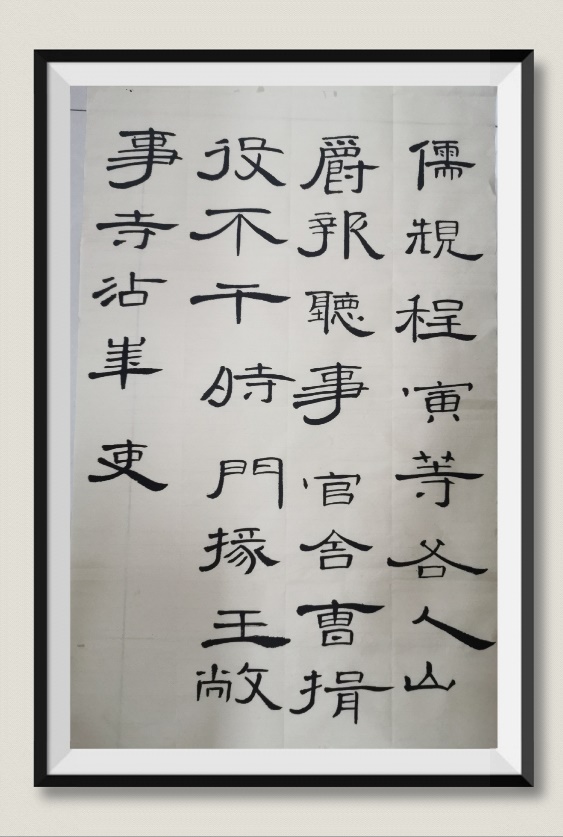 儒規程寅等各人山
爵報聽事官舍曹揖
役不干時門掾王敞
事寺沾年吏